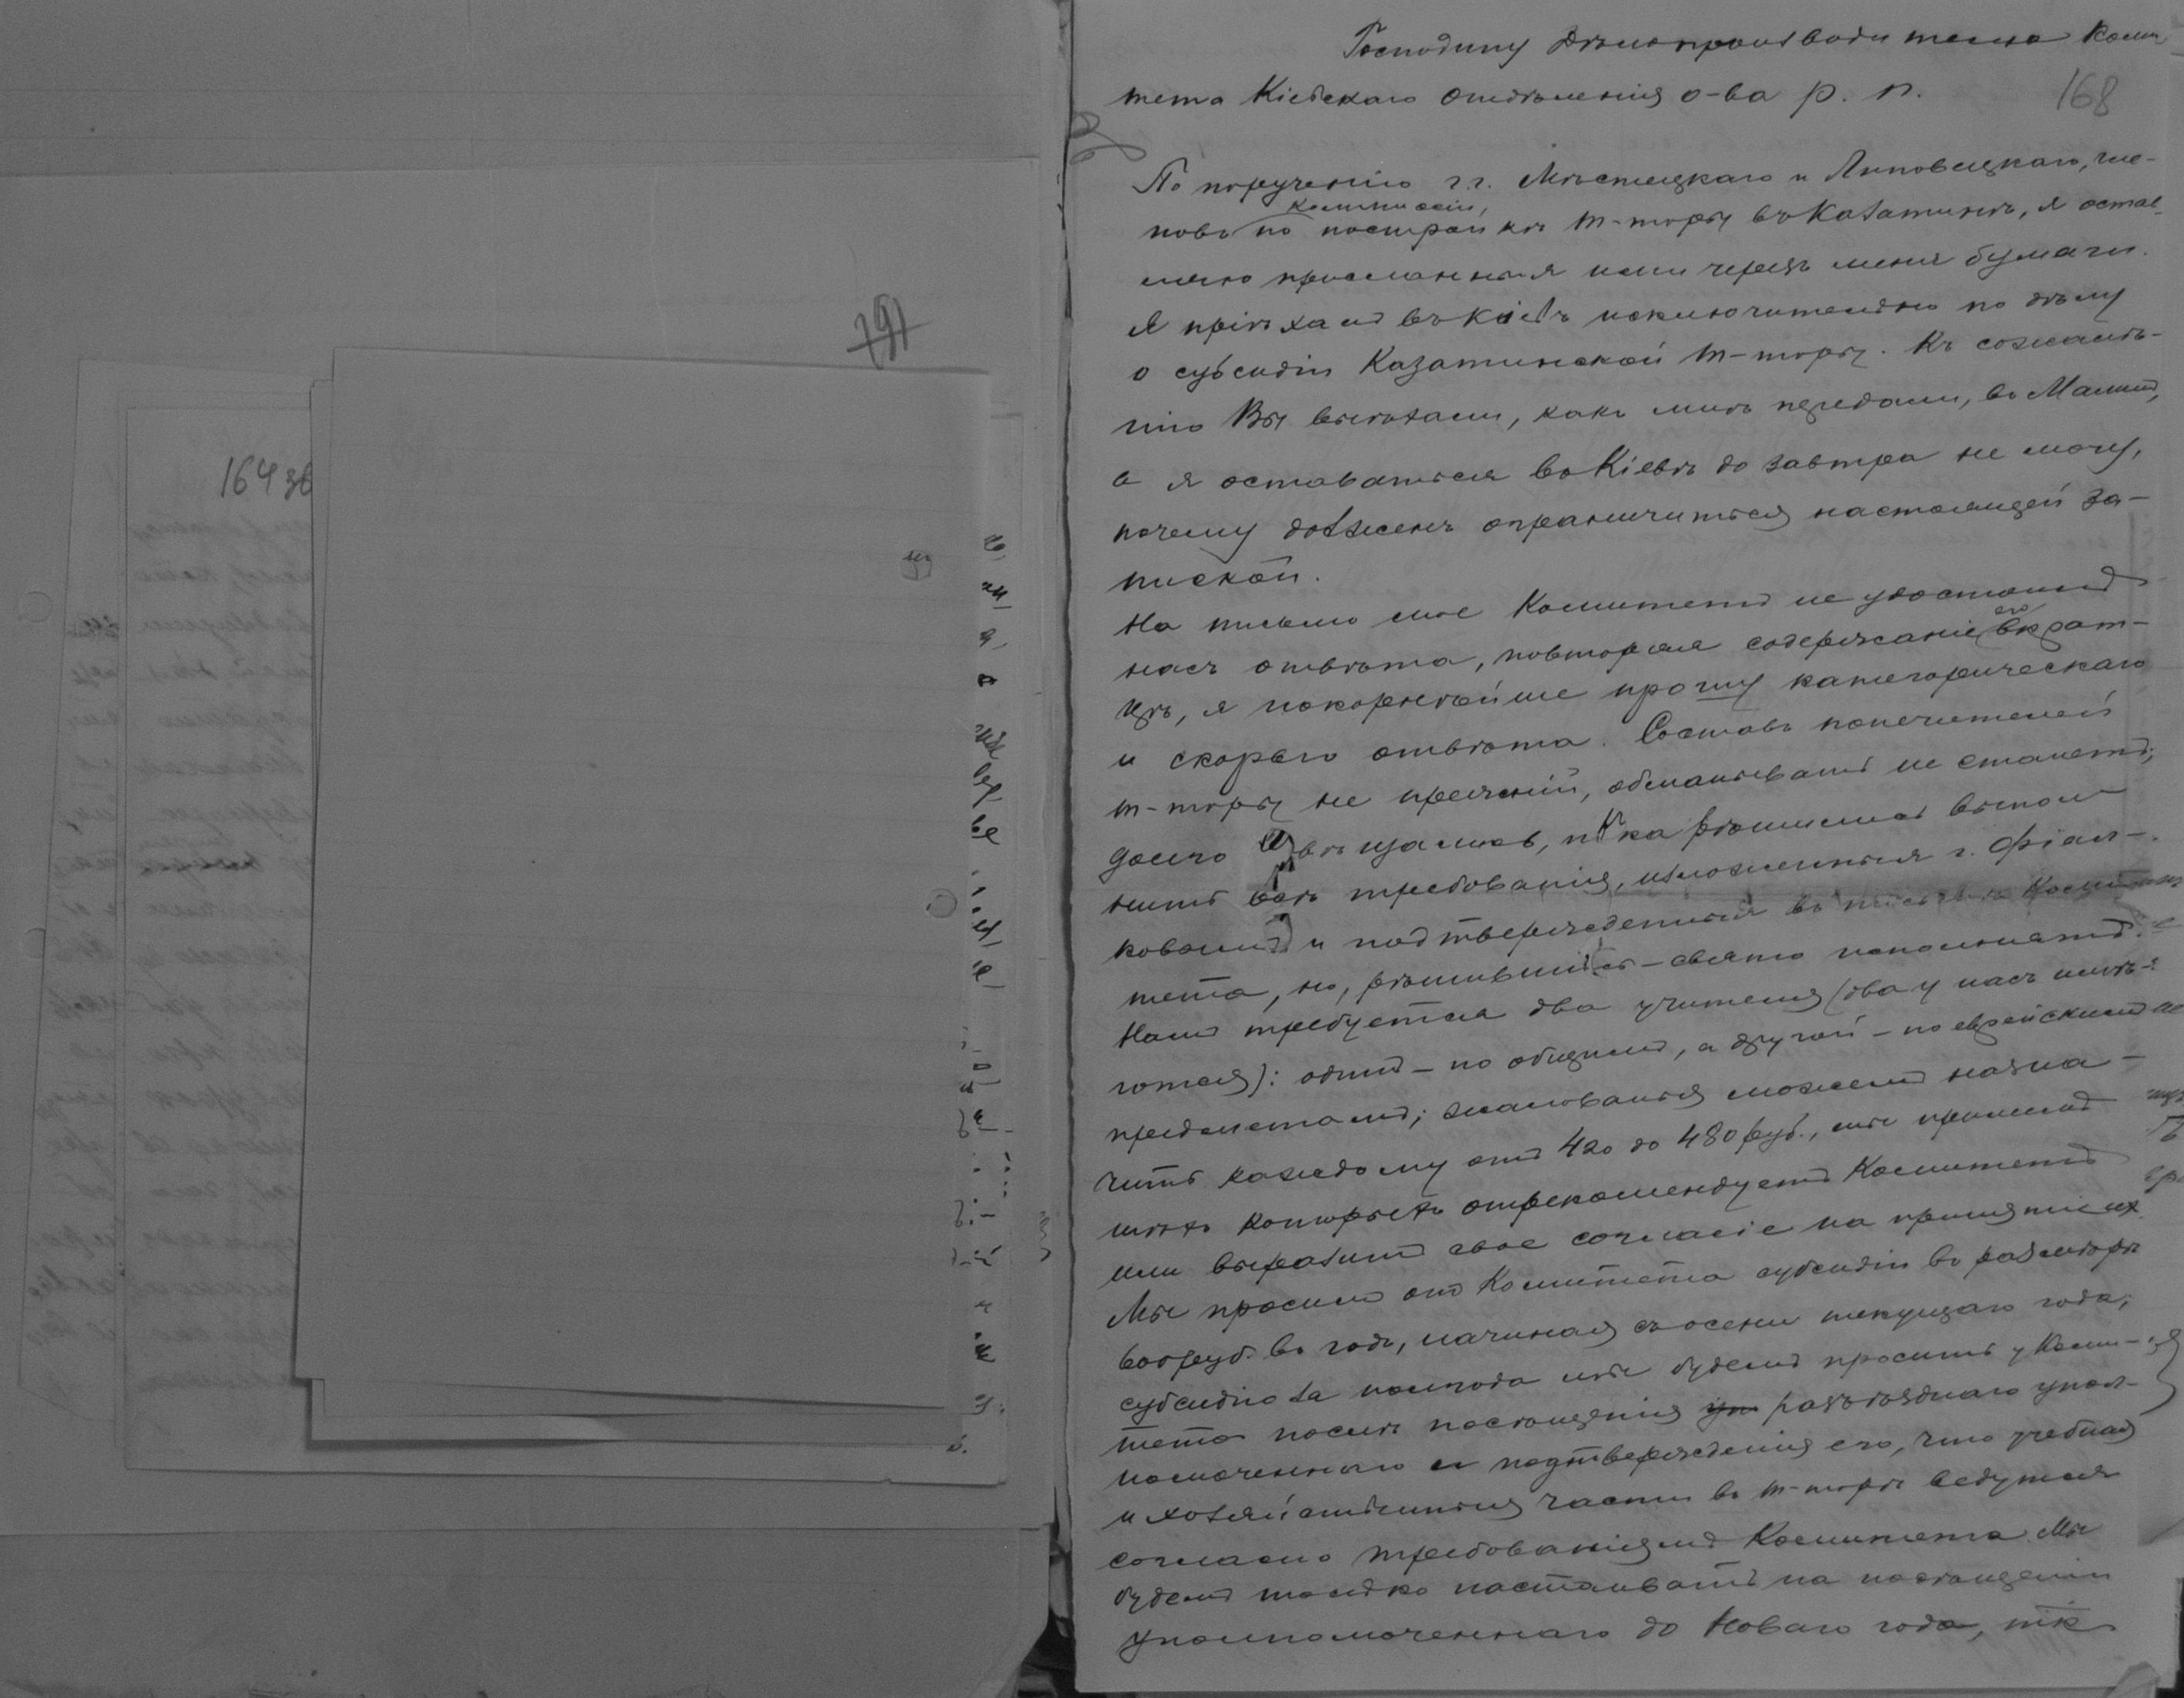 791
164 зв
168
Господину Дѣлопроизводителю Коми
тета Кіевскаго отдѣленія о-ва р. п.
По порученію г.г. Мѣстецкаго и Липовецкаго, чле-
новъ коммиссіи, по постройкѣ т-торы въ Казатинѣ, я остав-
ляю присланныя ими черезъ меня бумаги.
Я пріѣхалъ въ Кіевъ исключительно по дѣлу
о субсидіи Казатинской т-торы. Къ сожалѣ-
нію Вы выѣхали, какъ мнѣ передали, въ Малинъ,
а я оставаться въ Кіевѣ до завтра не могу,
почему долженъ ограничиться настоящей за-
пиской.
На письмо мое Комитетъ не удостоилъ
насъ отвѣта, повторяя содержаніе его вкрат-
цѣ, я покорнѣйше прошу категорическаго
и скораго отвѣта. Составъ попечителей
т-торы не прежній, обманывать не станетъ;
долго совѣщались, пока рѣшились выпол-
нить всѣ требованія, изложенныя г. Фіал-
ковымъ и подтвержденныя въ письмѣ Коми-
тета, но, рѣшившись – свято исполнятъ.
Намъ требуется два учителя (два у насъ имѣ-
ются): одинъ – по общимъ, а другой – по еврейскимъ
предметамъ; жалованья можемъ назна-
чить каждому отъ 420 до 480 руб., мы примемъ
тѣхъ которыхъ отрекомендуетъ Комитетъ
или выразитъ свое согласіе на принятіе ихъ.
Мы просимъ отъ Комитета субсидіи въ размѣрѣ
600 руб. въ годъ, начиная съ осени текущаго года;
субсидію за полгода мы будемъ просить у Коми-
тета послѣ посѣщенія разъѣзднаго упол-
номоченнаго и подтвержденія его, что учебная
и хозяйственныя части въ т-торѣ ведутся
согласно требованіямъ Комитета. Мы
будемъ только настаивать на посѣщеніи
уполномоченнаго до Новаго года, тк